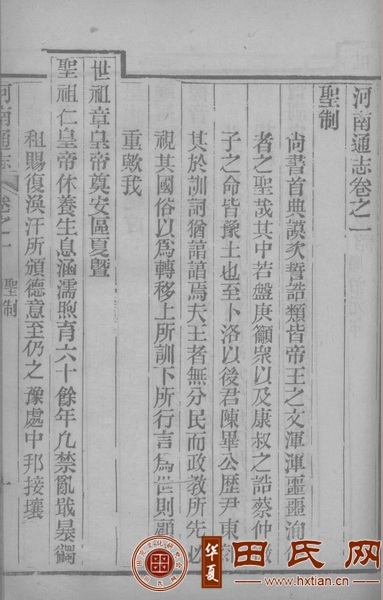 河南通志卷之一
聖制
尚書首典謨次誓誥類皆帝王之文渾渾噩噩洵
者之聖哉其中若盤庚籲衆以及康叔之誥蔡仲
子之命皆豫土也至卜洛以後君陳畢公歷尹東
其於訓詞猶諳諳焉夫王者無分民而政教所先以
視其國俗以爲轉移上所訓下所行言為世則顧
重歟我
世祖章皇帝奠安區夏曁
聖祖仁皇帝休養生息涵濡煦育六十餘年凡禁亂戢暴蠲
租賜復渙汗所頒德意至仍之豫處中邦接壤
河南通志
卷之一
聖制
一
华夏
田氏网
www.hxtian.cn